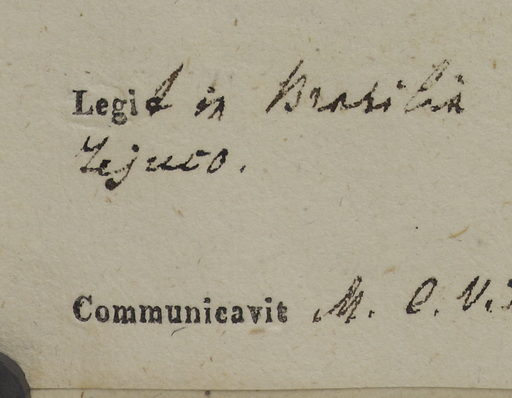 Legit in Brasilia
Tejuco.
Communicavit M. C. V.